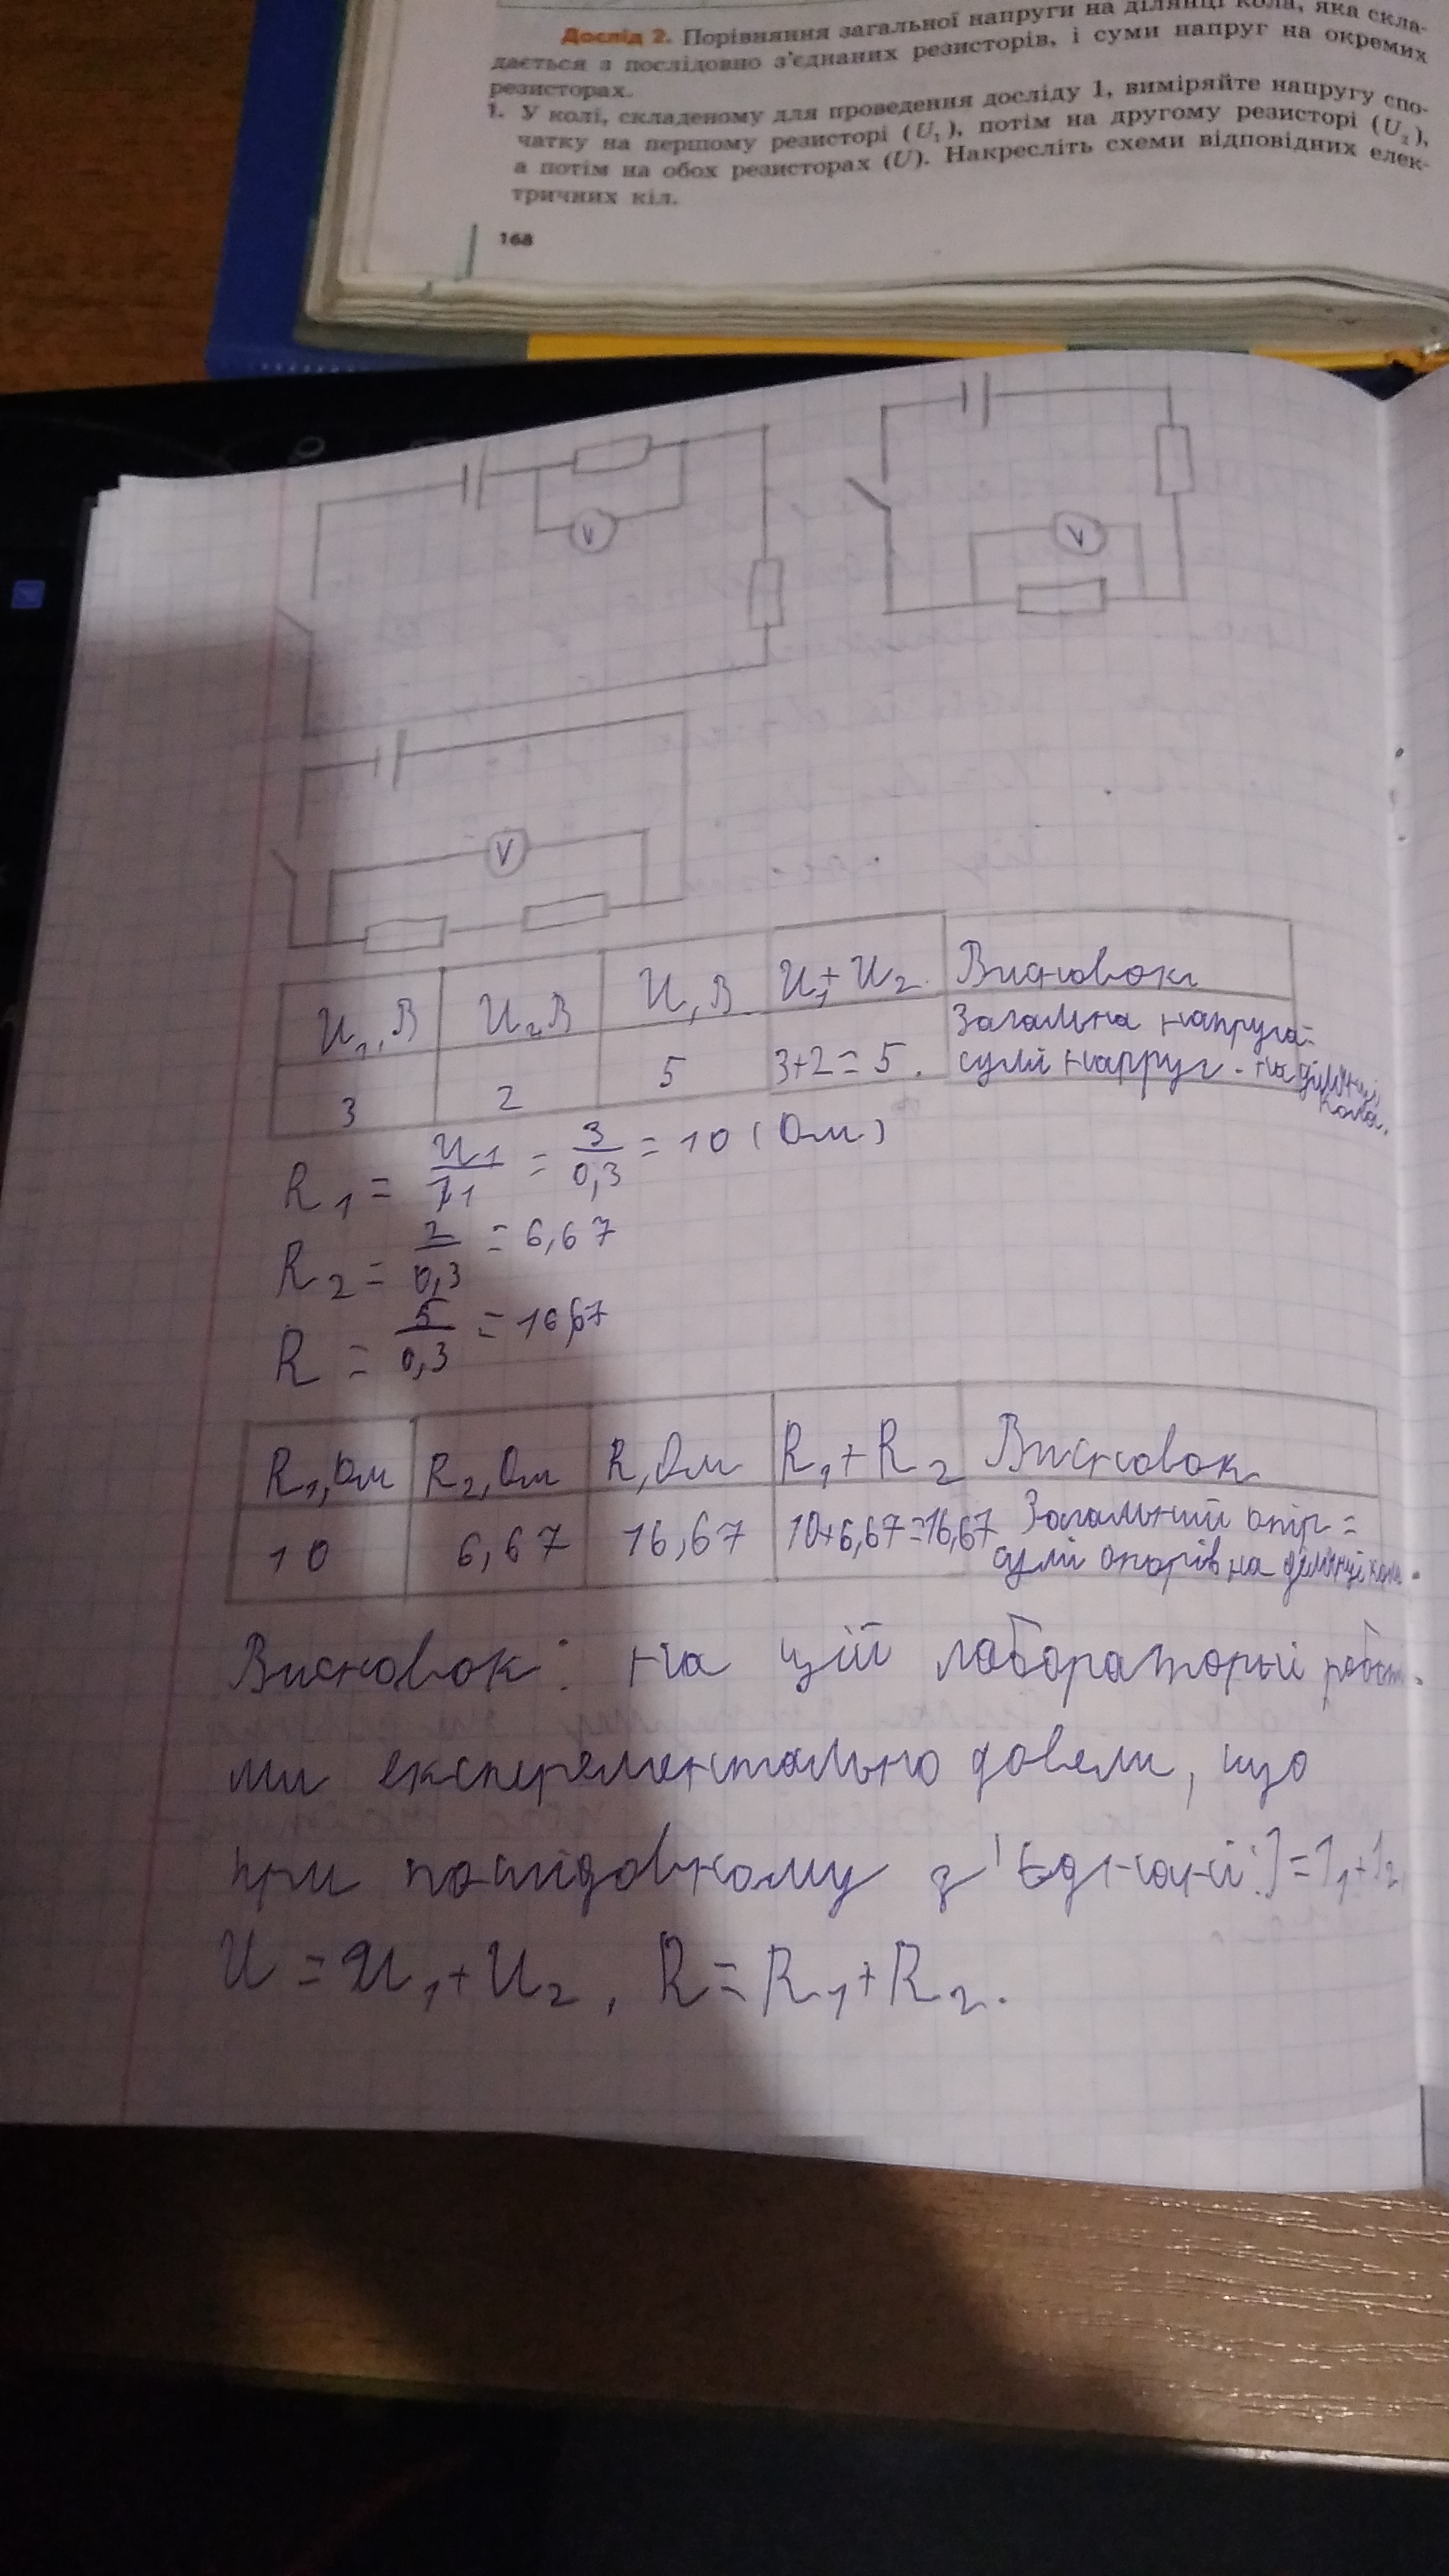 Дослід 2. Порівняння загальної напруги на ділянці кола, яка скла-
дається з послідовно з'єднаних резисторів, і суми напруг на окремих
резисторах.
1. У колі, складеному для проведення досліду 1, виміряйте напругу спо-
чатку на першому резисторі (U₁), потім на другому резисторі (U₂),
а потім на обох резисторах (U). Накресліть схеми відповідних елек-
тричних кіл.
168
V
V
V
U₁, В U₂ В U, В U₁+U₂ Висновок
3 2 5 3+2=5. Загальна напруга =
сумі напруг на ділянці
кола.
R₁ = U1/I1 = 3/0,3 = 10 (Ом)
R₂ = 2/0,3 = 6,67
R = 5/0,3 = 16,67
R₁, Ом R₂, Ом R, Ом R₁+R₂ Висновок
10 6,67 16,67 10+6,67=16,67 Загальний опір =
сумі опорів на ділянці кола.
Висновок: на цій лабораторні
ми експерементально довели, що
при послідовному з'єднані: I=I₁+I₂
U = U₁+U₂, R=R₁+R₂.